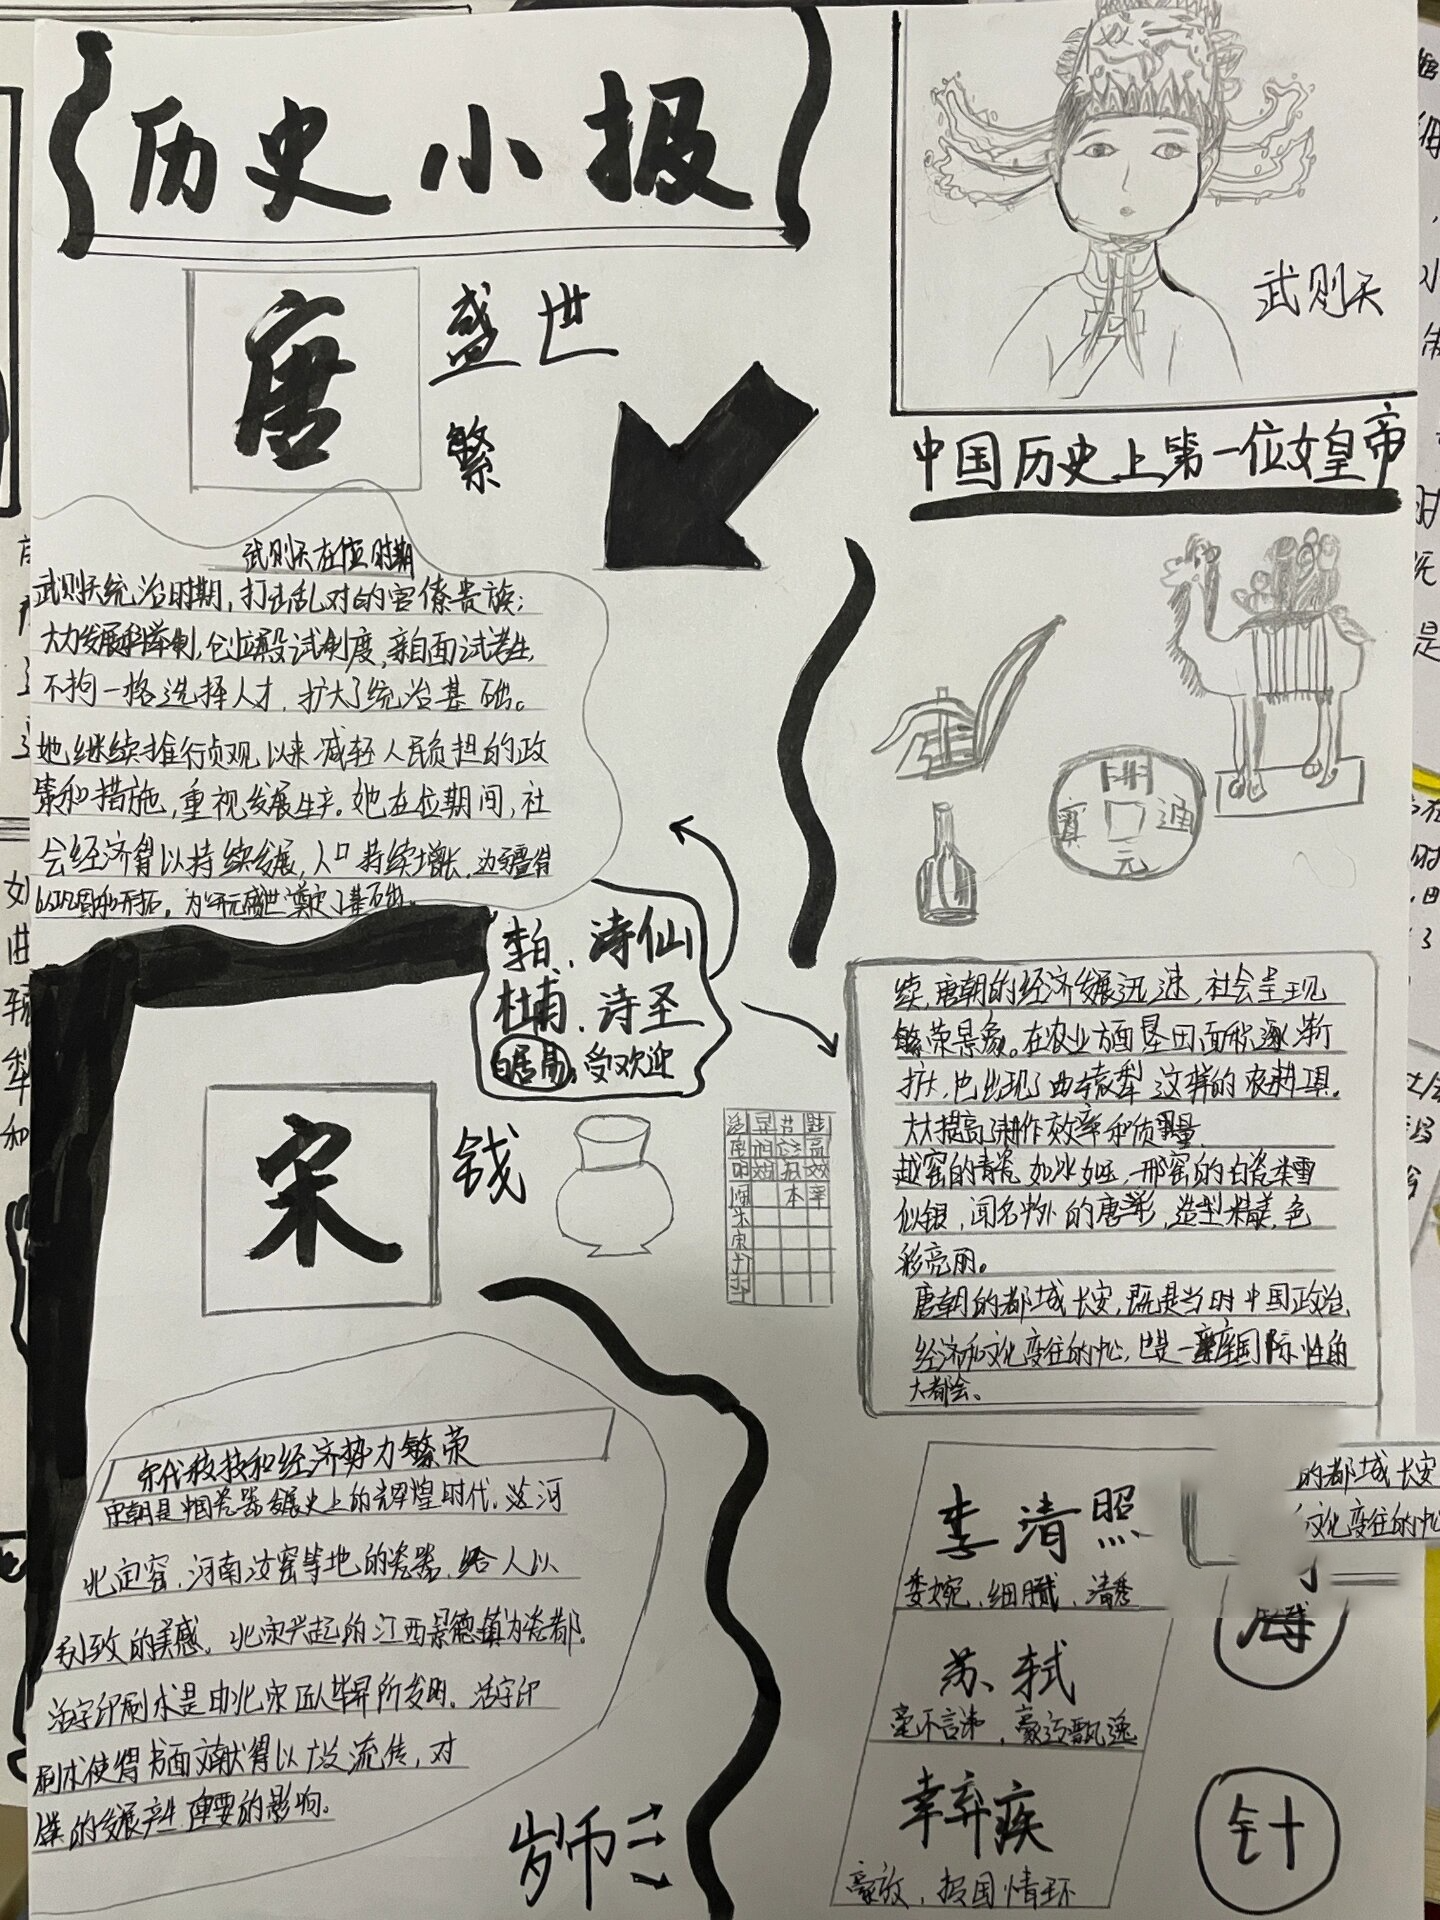 历史小报
唐
盛世
繁
武则天
中国历史上第一位女皇帝
武则天在位时期
武则天统治时期，打击乱对的官僚贵族；
大力发展科举制，创立殿试制度，亲自面试考生，
不拘一格选择人才，扩大了统治基础。
她继续推行贞观以来减轻人民负担的政
策和措施，重视发展生产。她在位期间，社
会经济得以持续发展，人口持续增长，边疆得
以巩固和开拓，为“开元盛世”奠定了基础。
李白、诗仙
杜甫、诗圣
白居易、受欢迎
开
元
通
宝
续，唐朝的经济发展迅速，社会呈现
繁荣景象。在农业方面垦田面积逐渐
扩大，也出现了曲辕犁这样的农耕工具。
大大提高了耕作效率和质量
越窑的青瓷如冰如玉，邢窑的白瓷类雪
似银，闻名中外的唐彩，造型精美，色
彩亮丽。
唐朝的都城长安，既是当时中国政治
经济和文化变往的中心，也是一座国际性的
大都会。
宋
钱
宋代科技和经济势力繁荣
宋朝是中国瓷器发展史上的辉煌时代。这河
北定窑、河南汝窑等地的瓷器，给人以
别致的美感。北宋兴起的江西景德镇为瓷都。
活字印刷术是由北宋匠人毕昇所发明。活字印
刷术使得书面文献得以大力流传，对
的发展产生重要的影响。
李清照
委婉、细腻、清秀
苏轼
豪迈飘逸
辛弃疾
豪放、报国情怀
的都城长安
文化变往的中心
针
岁币